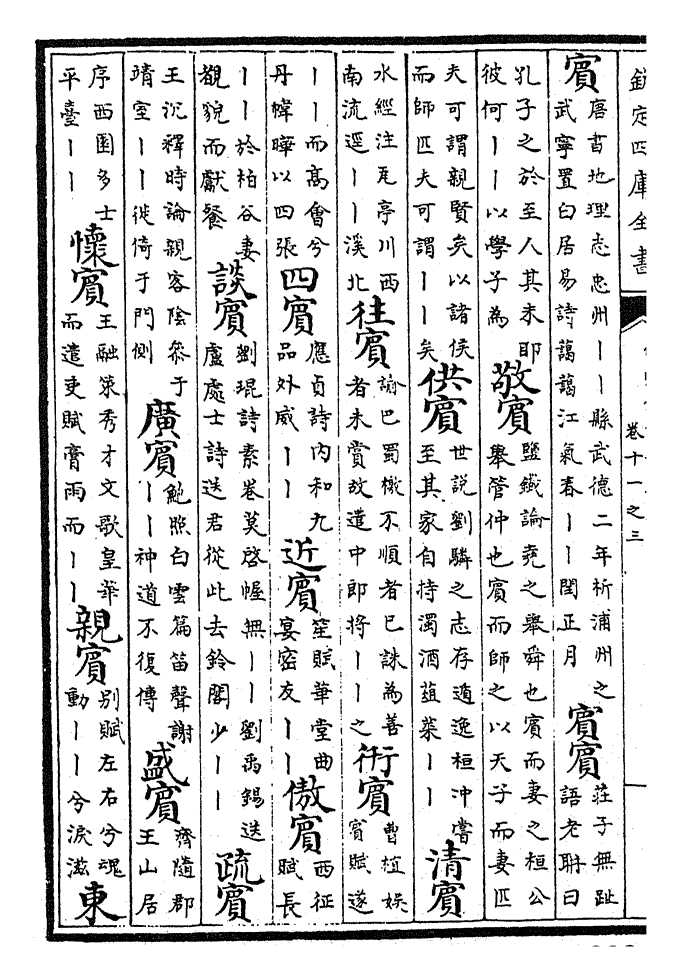 欽定四庫全書
卷十一之三
賓唐書地理志忠州丨丨縣武德二年析浦州之武寧置白居易詩藹藹江氣春丨丨閏正月賓賓莊子無趾語老聃曰
孔子之於至人其未耶彼何丨丨以學子為敬賓鹽鐵論堯之舉舜也賓而妻之桓公舉管仲也賓而師之以天子而妻匹
夫可謂親賢矣以諸侯而師匹夫可謂丨丨矣供賓世説劉驎之志存遁逸桓冲嘗至其家自持濁酒葅菜丨丨清賓
水經注瓦亭川西南流逕丨丨溪北往賓諭巴蜀檄不順者已誅為善者未賞故遣中郎將丨丨之衎賓曹植娛賓賦遂
丨丨而高會兮丹幃曄以四張四賓應貞詩内和九品外威丨丨近賓笙賦華堂曲宴密友丨丨傲賓西征賦長
丨丨於柏谷妻覩貌而獻餐談賓劉琨詩素卷莫啓幄無丨丨劉禹錫送盧處士詩送君從此去鈴閣少丨丨疏賓
王沉釋時論親客陰參于靖室丨丨徙倚于門側廣賓鮑照白雲篇笛聲謝丨丨神道不復傳盛賓齊隨郡王山居
序西園多士平臺丨丨懷賓王融策秀才文歌皇華而遣吏賦膏雨而丨丨親賓別賦左右兮魂動丨丨兮淚滋東